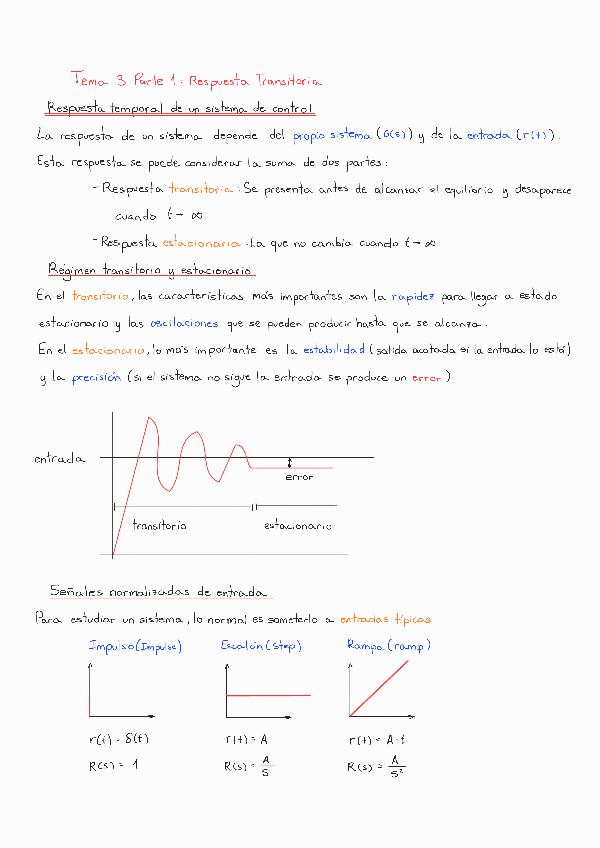 Tema 3 Parte 1: Respuesta Transitoria
Respuesta temporal de un sistema de control
La respuesta de un sistema depende del propio sistema (G(s)) y de la entrada (r(t)).
Esta respuesta se puede considerar la suma de dos partes:
- Respuesta transitoria: Se presenta antes de alcanzar el equilibrio y desaparece
cuando t → ∞
- Respuesta estacionaria: La que no cambia cuando t → ∞
Régimen transitorio y estacionario
En el transitorio, las características más importantes son la rapidez para llegar a estado
estacionario y las oscilaciones que se pueden producir hasta que se alcanza.
En el estacionario, lo más importante es la estabilidad (salida acotada si la entrada lo está)
y la precisión (si el sistema no sigue la entrada se produce un error)
entrada
error
transitorio estacionario
Señales normalizadas de entrada
Para estudiar un sistema, lo normal es someterlo a entradas típicas
Impulso (Impulse) Escalón (Step) Rampa (ramp)
r(t) = δ(t) r(t) = A r(t) = A·t
R(s) = 1 R(s) = A/s R(s) = A/s²